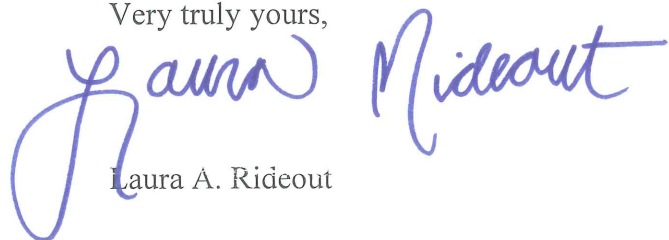 Very truly yours,
Laura Rideout
Laura A. Rideout